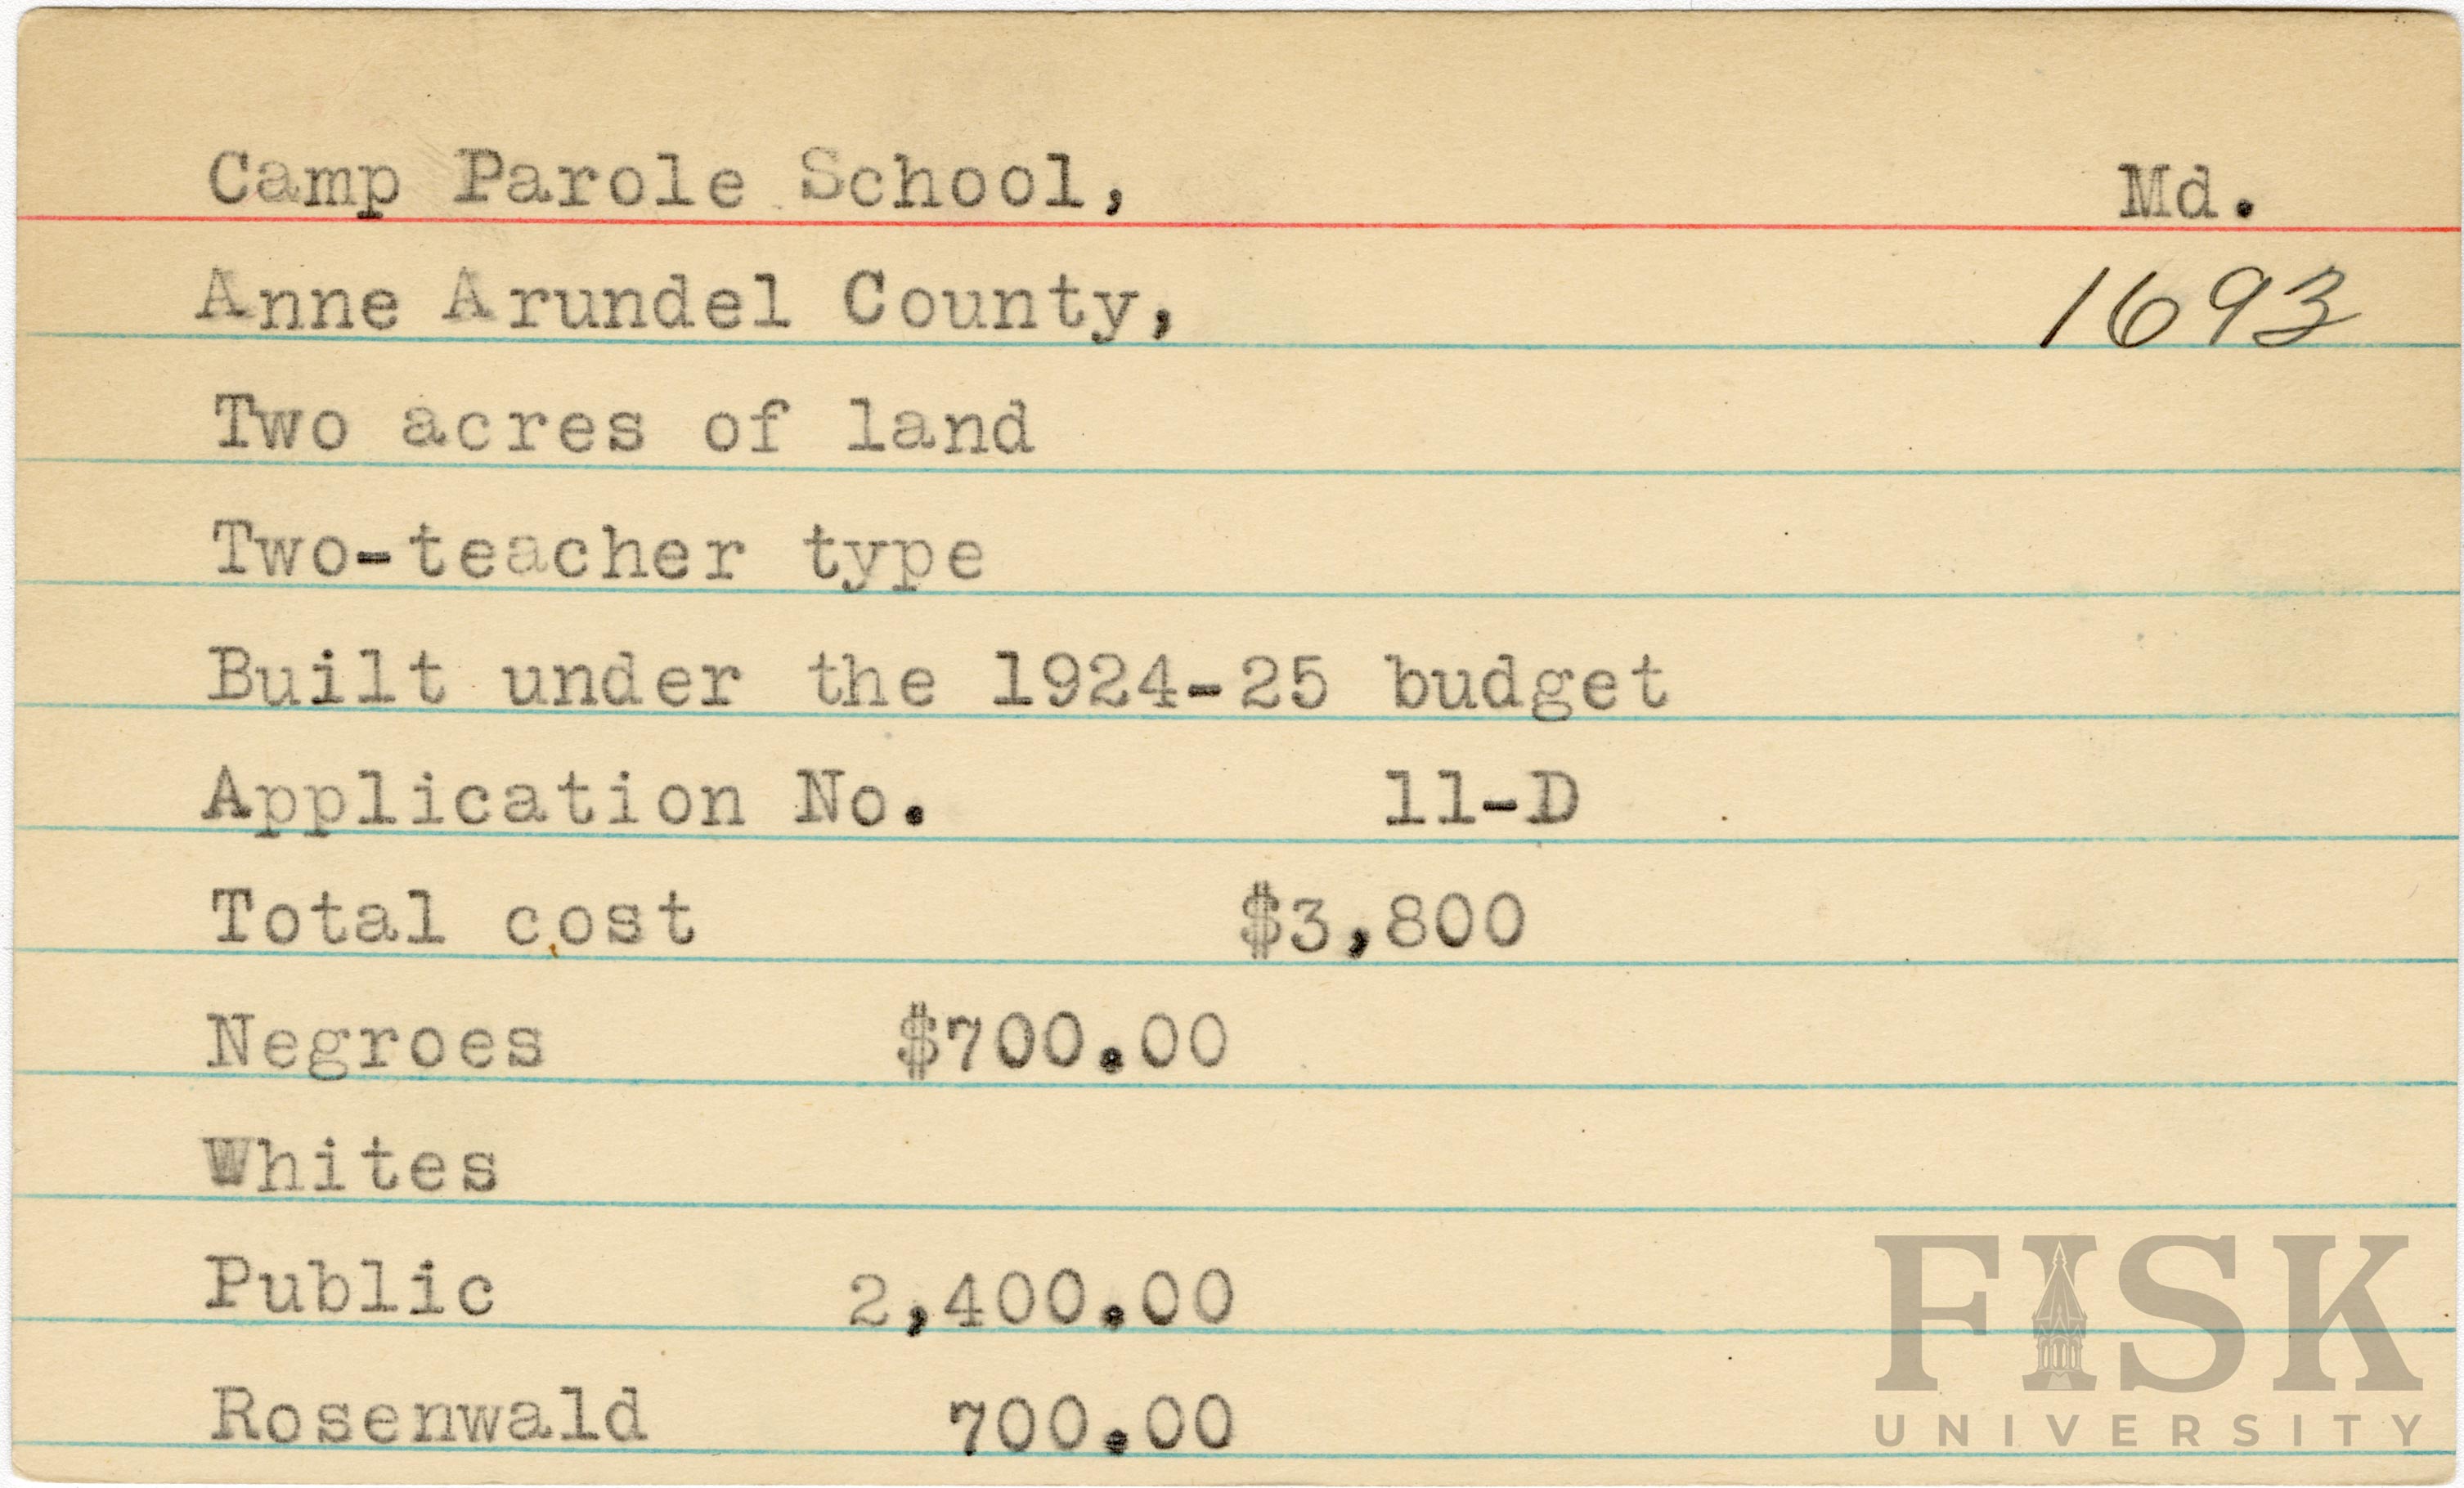 Camp Parole School, Md.
Anne Arundel County, 1693
Two acres of land
Two-teacher type
Built under the 1924-25 budget
Application No. 11-D
Total cost $3,800
Negroes $700.00
Whites
Public 2,400.00
Rosenwald 700.00
FISK
UNIVERSITY